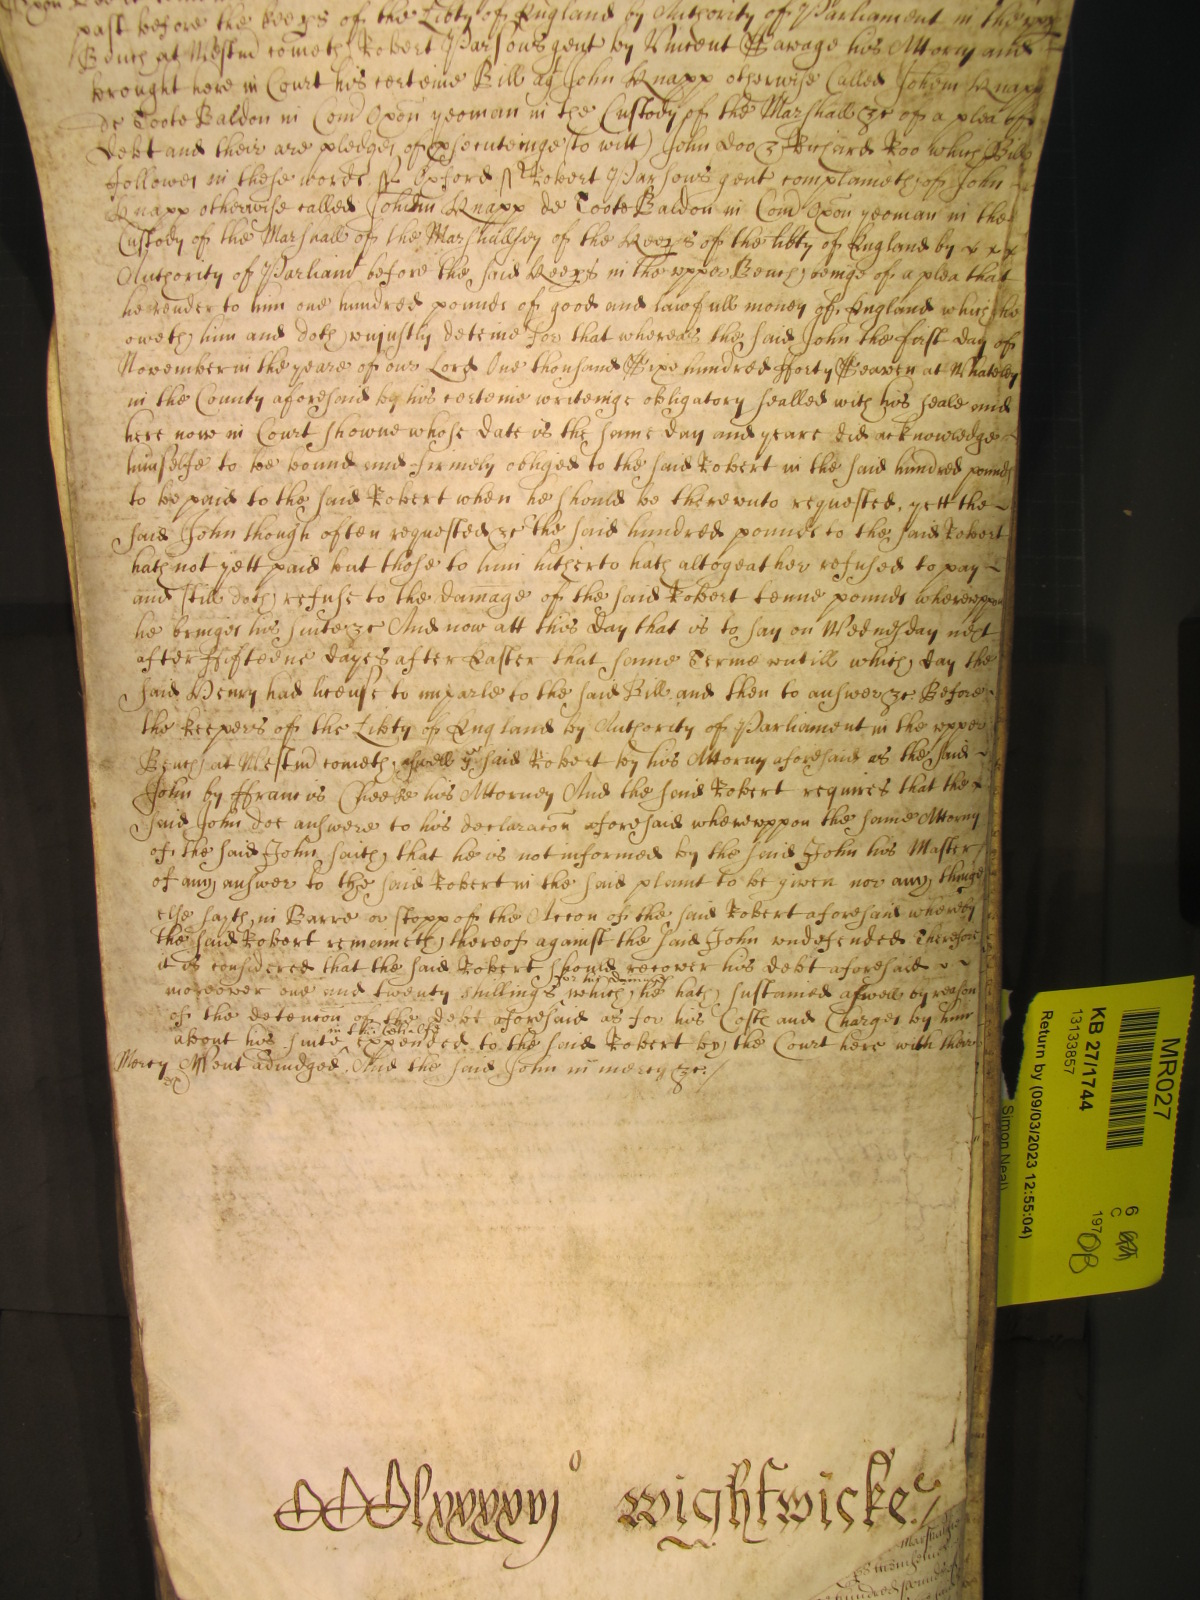 past before the keeps of the Libty of England by Authority of Parliament in the upp
Bench at Westm cometh Robert Parsons gent by Vincent Ssavage his Attorny and
brought here in Court his certeine Bill agt John Knapp otherwise Called Johem Knapp
de Toote Baldon in Com Oxon yeoman in the Custody of the Marshall &c of a plea of
Debt and their are pledges of psecuteinge (to witt) John Doo & Richard Roo which Bill
followes in these words ss Oxford ss Robert Parsons gent complaineth of John
Knapp otherwise called Johem Knapp de Toote Baldon in Com Oxon yeoman in the
Custody of the Marshall of the Marshallsey of the Keeps of the libty of England by
Authority of Parliamt before the said Keeps in the upper Bench beinge of a plea that
he render to him one hundred pounds of good and lawfull money of England which he
oweth him and doth unjustly deteine for that whereas the said John the first day of
November in the yeare of our Lord One thousand Ssixe hundred fforty Sseaven at Whateley
in the County aforesaid by his certeine writeinge obligatory sealled with his seale and
here now in Court showne whose date is the same day and yeare did acknowledge
himselfe to be bound and firmely obliged to the said Robert in the said hundred pounds
to be paid to the said Robert when he should be thereunto requested, yett the
said John though often requested &c the said hundred pounds to the said Robert
hath not yett paid but those to him hitherto hath altogeather refused to pay
and still doth refuse to the damage of the said Robert tenne pounds whereuppon
he bringes his suite &c And now att this Day that is to say on Wednesday next
after ffifteene dayes after Easter that same Terme untill which day the
said Henry had license to imparle to the said Bill and then to answer &c Before
the keepers of the Libty of England by Authority of Parliament in the upper
Bench at Westm cometh aswell ye said Robert by his Attorny aforesaid as the said
John by ffrancis Cheeke his Attorney And the said Robert requires that the
said John doe answere to his declaracon aforesaid whereuppon the same Attorny
of the said John saith that he is not informed by the said John his Master
of any answer to the said Robert in the said plaint to be given nor any thinge
else sayth in Barre or stopp of the Accon of the said Robert aforesaid whereby
the said Robert remaineth thereof against the said John undefended Therefore
it is considered that the said Robert should recover his debt aforesaid
for his damages
moreover one and twenty shillings which he hath sustained aswell by reason
of the detencon of the debt aforesaid as for his Costs and Charges by him
in this behalfe
about his suite expended to the said Robert by the Court here with there
Mercy Assent adiudged. And the said John in mercy &c./
CCClxxxxvj o Wightwicke
MR027
KB 27/1744
13133857
Return by (09/03/2023 12:55:04)
Simon Neal
6
C
197